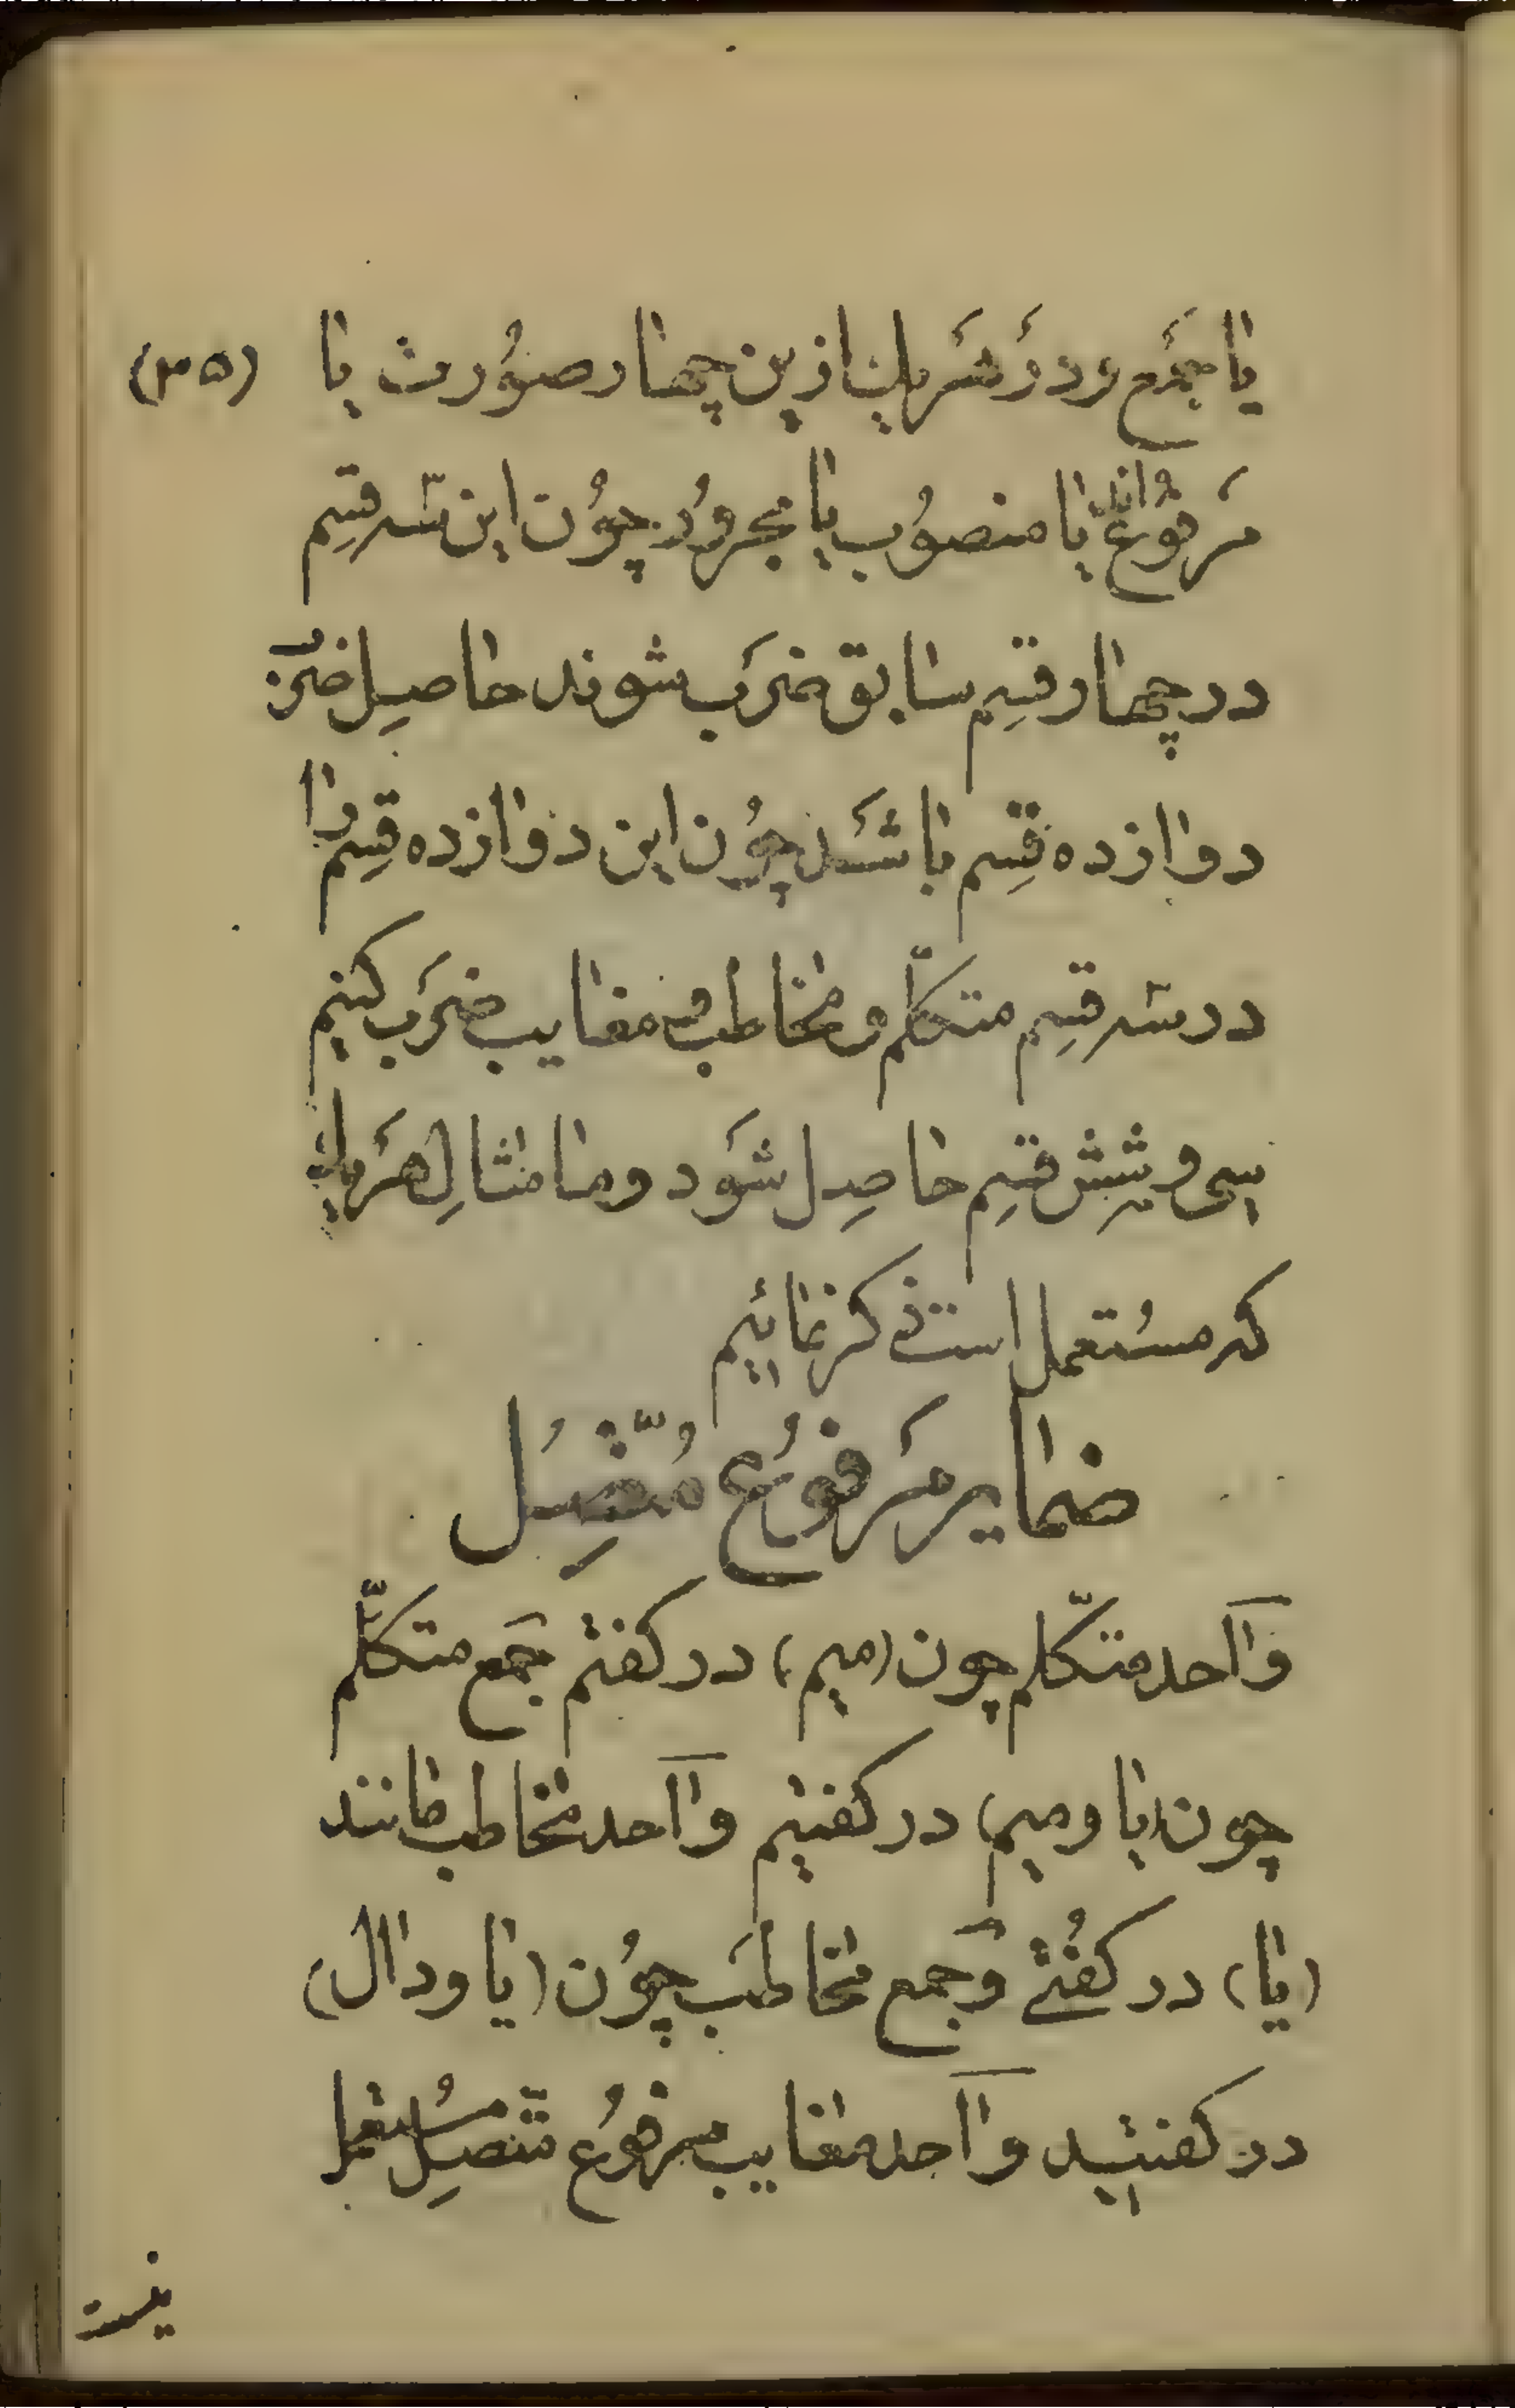 یا جَمع و دَر هَر یک ازین چهار صوُرت یا (۳۵)
مَرفوُع‌اند یا منصوُب یا مجروُر چوُن این سه قِسم
در چهار قِسم سابق ضَرب شوند حاصِل ضَرب
دوازده قِسم باشَد چوُن این دوازده قِسم را
در سه قِسم متکلّم و مخاطب و مغایب ضَرب کنیم
سی و شِش قِسم حاصِل شَود و ما مثالِ هَر یک
که مسُتعمل است ذکر نمائیم
ضمایر مَرفوُع مُتّصِل
واحد متکلّم چون (میم) در گفتم جَمع متکلّم
چون (یا و میم) در گفتیم واحد مخاطب مانند
(یا) در گفُتی وَ جَمع مخاطَب چوُن (یا و دال)
در گفتید واحد مغایب مرفوُع متّصِل مسُتعمل
نیست